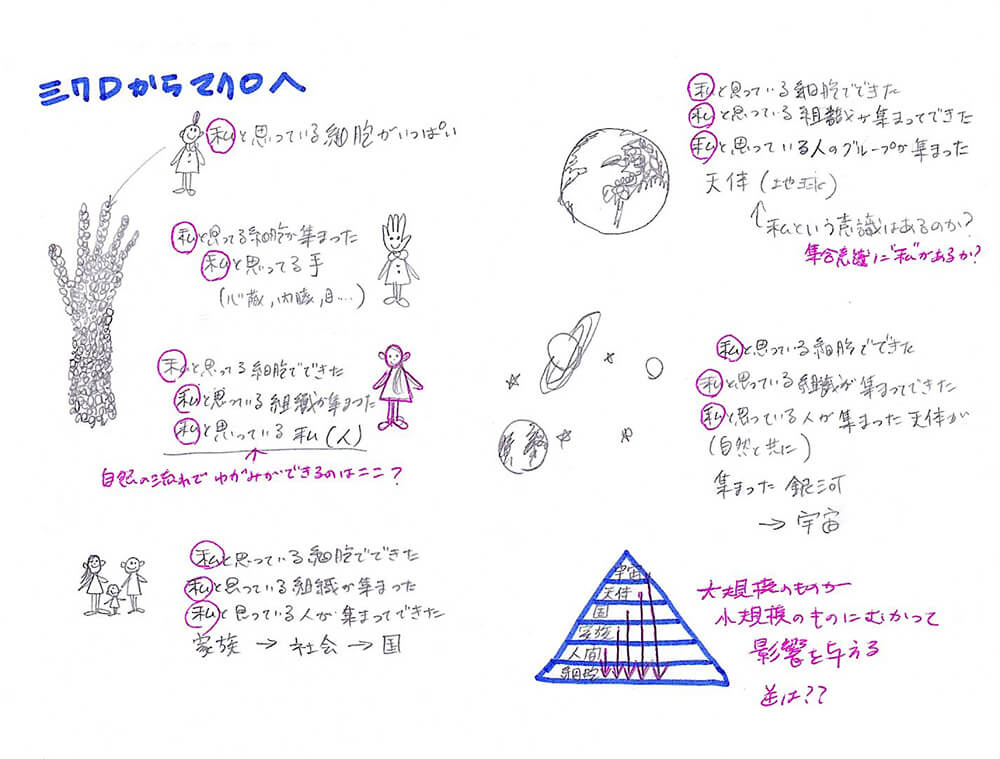 ミクロからマクロへ
私と思っている細胞がいっぱい
私と思ってる細胞が集まった
私と思ってる手
(心蔵,内臓,目…)
私と思ってる細胞でできた
私と思っている組織が集まった
私と思っている私(人)
自然の流れでゆがみができるのはここ?
私と思っている細胞でできた
私と思っている組織が集まった
私と思っている人が集まってできた
家族→社会→国
私と思っている細胞でできた
私と思っている組織が集まってできた
私と思っている人のグループが集まった
天体(地球)
↑私という意識はあるのか?
集合意識に"私"があるか?
私と思っている細胞でできた
私と思っている組織が集まってできた
私と思っている人が集まった天体が
(自然と共に)
集まった銀河
→宇宙
宇宙
天体
国
家族
人間
細胞
大規模のものが
小規模のものにむかって
影響を与える
逆は??